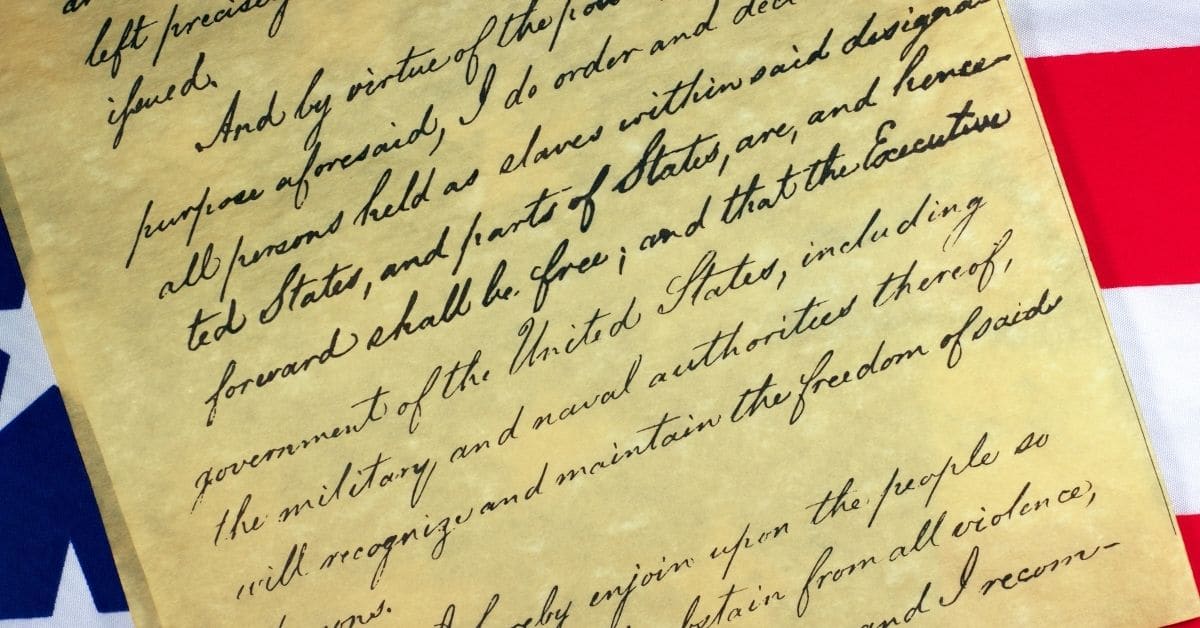 left precisely
issued.
And by virtue of the
purpose aforesaid, I do order and
all persons held as slaves within said designa-
ted States, and parts of States, are, and hence-
forward shall be free; and that the Executive
government of the United States, including
the military and naval authorities thereof,
will recognize and maintain the freedom of said
upon the people so
from all violence,
and I recom-